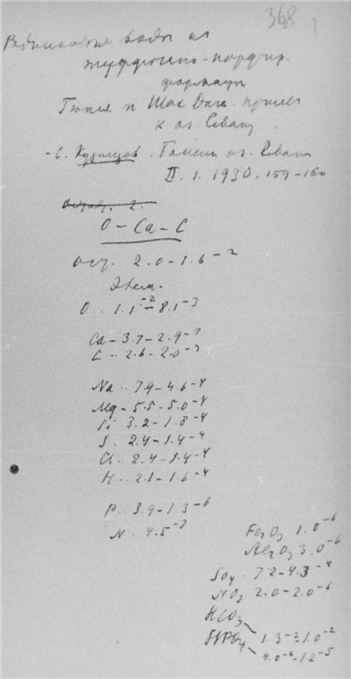 368
Родниковые воды из
туффогено-порфир.
формации
Гюнея и Шах Дага. прилег.
к оз. Севану
- С. Кузнецов. Басейн оз. Севан
II. 1. 1930. 159-160
O-Ca-C
2.0-1.6⁻²
Элем.
O.. 1.1⁻²-8.1⁻³
Ca- 3.7-2.9⁻³
C.. 2.6-2.0⁻³
Na.. 7.9-4.6⁻⁴
Mg- 5.5-5.0⁻⁴
Si. 3.2-1.8⁻⁴
S. 2.4-1.4⁻⁴
Cl.. 2.4-1.4⁻⁴
K.. 2.1-1.6⁻⁴
P.. 3.9-1.3⁻⁶
N.. 4.5⁻⁷
Fe₂O₃ 1.0⁻⁶
Al₂O₃ 3.0⁻⁶
SO₄. 7.2-4.3⁻⁴
NO₃ 2.0-2.0⁻⁶
HCO₃ 1.3⁻²-1.0⁻²
HPO₄ 4.0⁻⁶-1.2⁻⁵